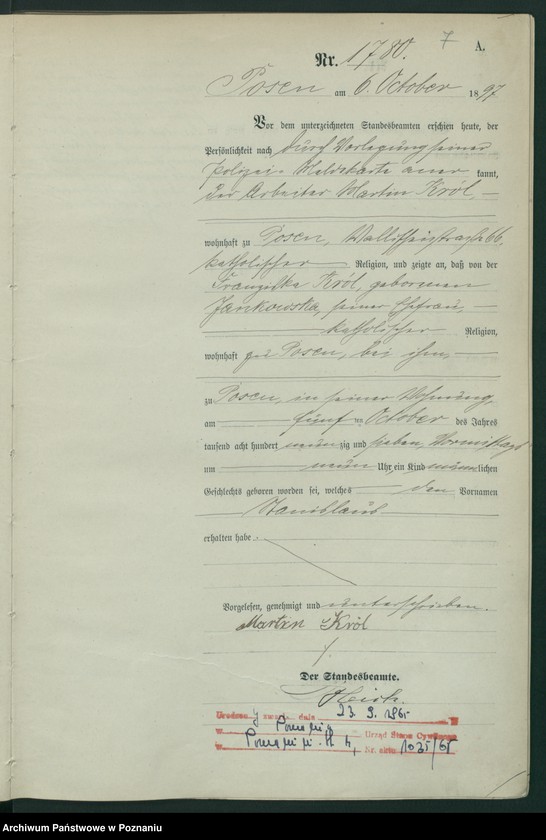 7
A.
Nr. 1780.
Posen am 6. October 1897
Vor dem unterzeichneten Standesbeamten erschien heute, der
Persönlichkeit nach durch Vorlegung seiner
Polizei-Meldekarte aner kannt,
der Arbeiter Martin Król
wohnhaft zu Posen, Wallischeistraße 66,
katholischer Religion, und zeigte an, daß von der
Franziska Król, geborenen
Jankowska, seiner Ehefrau,
katholischer Religion,
wohnhaft zu Posen, bei ihm,
zu Posen, in seiner Wohnung,
am fünf ten October des Jahres
tausend acht hundert neun zig und sieben, Vormittags
um neun Uhr, ein Kind männlichen
Geschlechts geboren worden sei, welches den Vornamen
Stanislaus
erhalten habe.
Vorgelesen, genehmigt und unterschrieben.
Martin Król
Der Standesbeamte.
dnia 23. 9. 1965
w Poznaniu
Urząd Stanu Cywilnego
Nr. aktu 1035/65
Archiwum Państwowe w Poznaniu